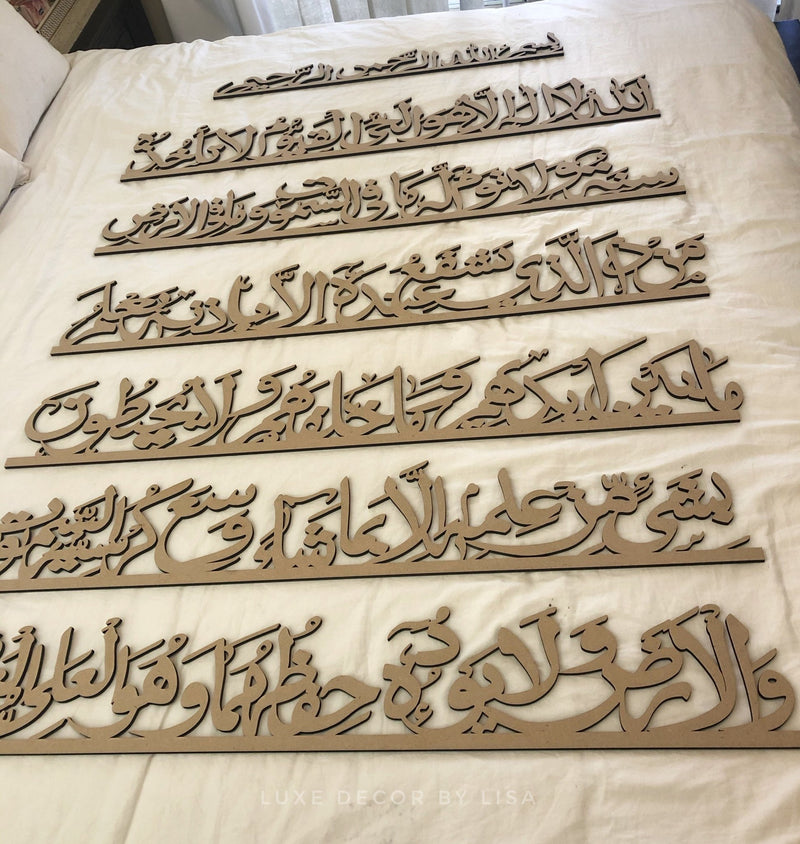 بسم الله الرحمن الرحيم
الله لا إله إلا هو الحي القيوم لا تأخذه
سنة ولا نوم له ما في السموت وما في الأرض
من ذا الذي يشفع عنده إلا بإذنه يعلم
ما بين أيديهم وما خلفهم ولا يحيطون
بشيء من علمه إلا بما شاء وسع كرسيه السموت
والأرض ولا يؤده حفظهما وهو العلي
LUXE DECOR BY LISA